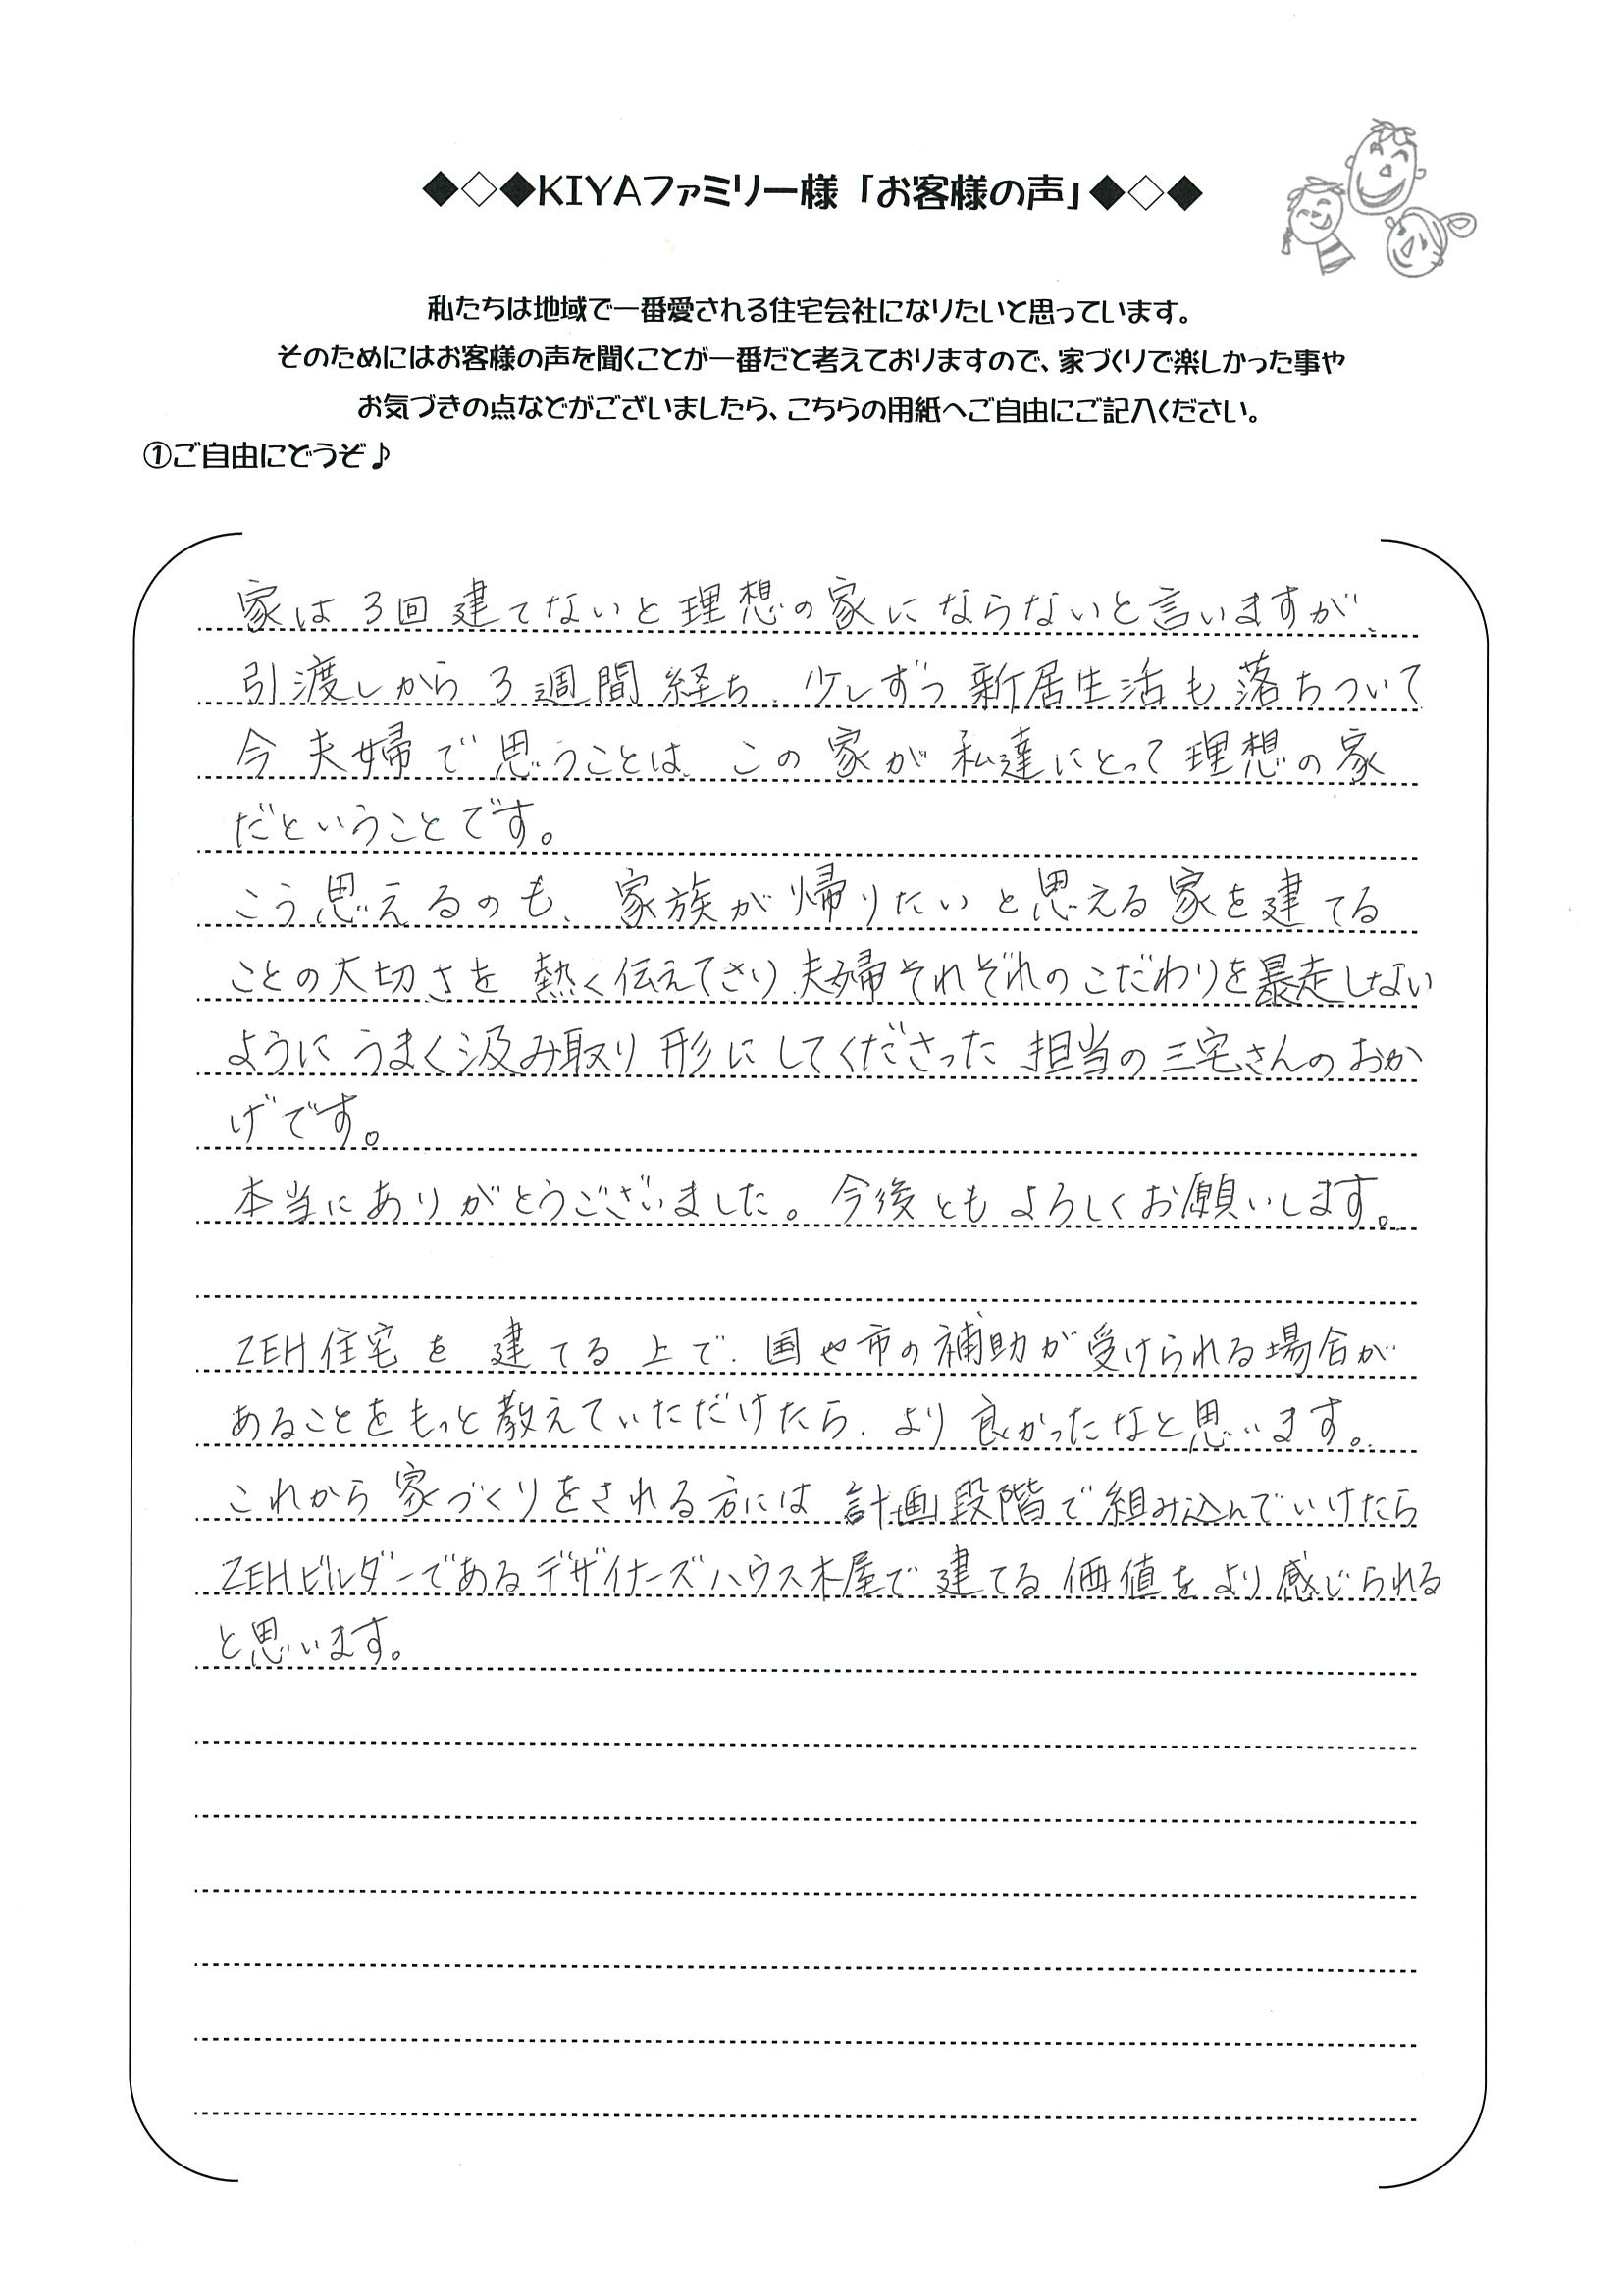 ◆◇◆KIYAファミリー様「お客様の声」◆◇◆
私たちは地域で一番愛される住宅会社になりたいと思っています。
そのためにはお客様の声を聞くことが一番だと考えておりますので、家づくりで楽しかった事や
お気づきの点などがございましたら、こちらの用紙へご自由にご記入ください。
①ご自由にどうぞ♪
家は3回建てないと理想の家にならないと言いますが、
引渡しから3週間経ち、少しずつ新居生活も落ちついて
今夫婦で思うことは、この家が私達にとって理想の家
だということです。
こう思えるのも、家族が帰りたいと思える家を建てる
ことの大切さを熱く伝えてさり、夫婦それぞれのこだわりを暴走しない
ようにうまく汲み取り形にしてくださった担当の三宅さんのおか
げです。
本当にありがとうございました。今後ともよろしくお願いします。
ZEH住宅を建てる上で、国や市の補助が受けられる場合が
あることをもっと教えていただけたら、より良かったなと思います。
これから家づくりをされる方には計画段階で組み込んでいけたら
ZEHビルダーであるデザイナーズハウス木屋で建てる価値をより感じられる
と思います。